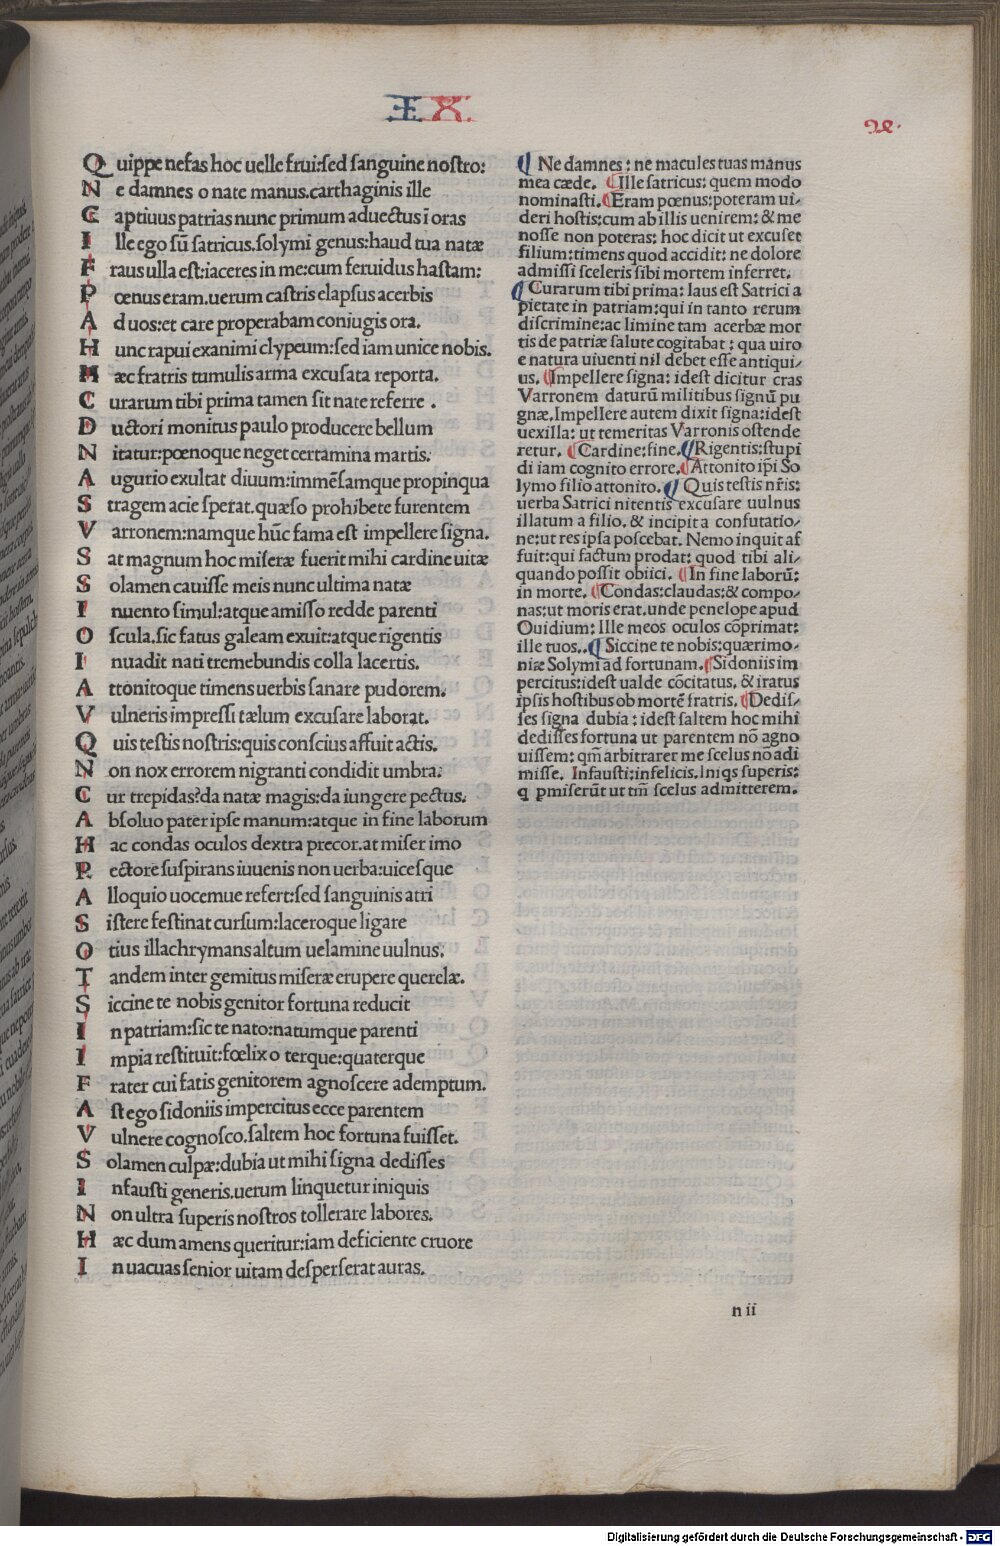 IX
Quippe nefas hoc uelle frui:ſed ſanguine noſtro:
Ne damnes o nate manus.carthaginis ille
Captiuus patrias nunc primum aduectus ī oras
Ille ego sū ſatricus.ſolymi genus:haud tua natæ
Fraus ulla eſt:iaceres in me:cum feruidus haſtam:
Pœnus eram.uerum caſtris elapſus acerbis
Ad uos:et care properabam coniugis ora.
Hunc rapui exanimi clypeum:ſed iam unice nobis.
Hæc fratris tumulis arma excuſata reporta.
Curarum tibi prima tamen ſit nate referre .
Ductori monitus paulo producere bellum
Nitatur:pœnoque neget certamina martis.
Augurio exultat diuum:immēſamque propinqua
Stragem acie ſperat.quæſo prohibete furentem
Varronem:namque hūc fama eſt impellere ſigna.
Sat magnum hoc miſeræ fuerit mihi cardine uitæ
Solamen cauiſſe meis nunc ultima natæ
Inuento ſimul:atque amiſſo redde parenti
Oſcula.ſic fatus galeam exuit:atque rigentis
Inuadit nati tremebundis colla lacertis.
Attonitoque timens uerbis ſanare pudorem.
Vulneris impreſſi tælum excuſare laborat.
Quis teſtis noſtris:quis conſcius affuit actis.
Non nox errorem nigranti condidit umbra:
Cur trepidas?da natæ magis:da iungere pectus.
Abſoluo pater ipſe manum:atque in fine laborum
Hac condas oculos dextra precor.at miſer imo
Pectore ſuſpirans iuuenis non uerba:uiceſque
Alloquio uocemue refert:ſed ſanguinis atri
Siſtere feſtinat curſum:laceroque ligare
Otius illachrymans altum uelamine uulnus.
Tandem inter gemitus miſeræ erupere querelæ.
Siccine te nobis genitor fortuna reducit
In patriam:ſic te nato:natumque parenti
Impia reſtituit:fœlix o terque:quaterque
Frater cui fatis genitorem agnoſcere ademptum.
Aſt ego ſidoniis impercitus ecce parentem
Vulnere cognoſco.ſaltem hoc fortuna fuiſſet.
Solamen culpæ:dubia ut mihi ſigna dediſſes
Infauſti generis.uerum linquetur iniquis
Non ultra ſuperis noſtros tollerare labores.
Hæc dum amens queritur:iam deficiente cruore
In uacuas ſenior uitam deſperſerat auras.
¶ Ne damnes: ne macules tuas manus
mea cæde. ¶Ille ſatricus: quem modo
nominaſti.¶Eram pœnus:poteram ui-
deri hoſtis:cum ab illis uenirem: & me
noſſe non poteras: hoc dicit ut excuſet
filium:timens quod accidit: ne dolore
admiſſi ſceleris ſibi mortem inferret.
¶Curarum tibi prima: laus eſt Satrici a
pietate in patriam:qui in tanto rerum
diſcrimine:ac limine tam acerbæ mor
tis de patriæ ſalute cogitabat: qua uiro
e natura uiuenti nil debet eſſe antiqui-
us. ¶Impellere ſigna: ideſt dicitur cras
Varronem daturū militibus ſignū pu
gnæ.Impellere autem dixit ſigna:ideſt
uexilla: ut temeritas Varronis oſtende
retur. ¶Cardine:fine.¶Rigentis:ſtupi
di iam cognito errore.¶Attonito ip̄i So
lymo filio attonito. ¶Quis teſtis nr̄is:
uerba Satrici nitentis excuſare uulnus
illatum a filio. & incipit a confutatio-
ne:ut res ipſa poſcebat. Nemo inquit af
fuit:qui factum prodat: quod tibi ali-
quando poſſit obiici. ¶In fine laborū:
in morte. ¶Condas:claudas:& compo-
nas:ut moris erat.unde penelope apud
Ouidium: Ille meos oculos cōprimat:
ille tuos..¶Siccine te nobis:quærimo-
niæ Solymi ad fortunam.¶Sidoniis im
percitus:ideſt ualde cōcitatus. & iratus
ipſis hoſtibus ob mortē fratris. ¶Dediſ-
ſes ſigna dubia: ideſt ſaltem hoc mihi
dediſſes fortuna ut parentem nō agno
uiſſem: qm̄ arbitrarer me ſcelus nō adi
miſſe. Infauſti:infelicis.Iniqs ſuperis:
q ꝑmiſerūt ut tm̄ ſcelus admitterem.
n ii
Digitalisierung gefördert durch die Deutsche Forschungsgemeinschaft - DFG